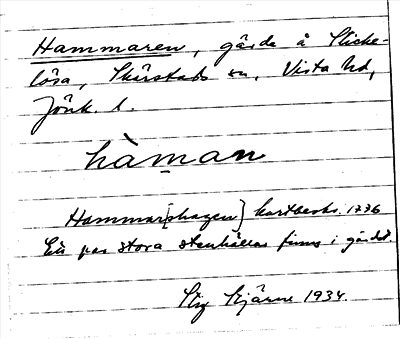 Hammaren, gärde å Slicke-
lösa, Skärstads sn, Vista hd,
Jönk. l.
hàman
Hammar[shagen] kartbeskr. 1736
Ett par stora stenhällar finns i gärdet.
Stig Bjärme 1934.